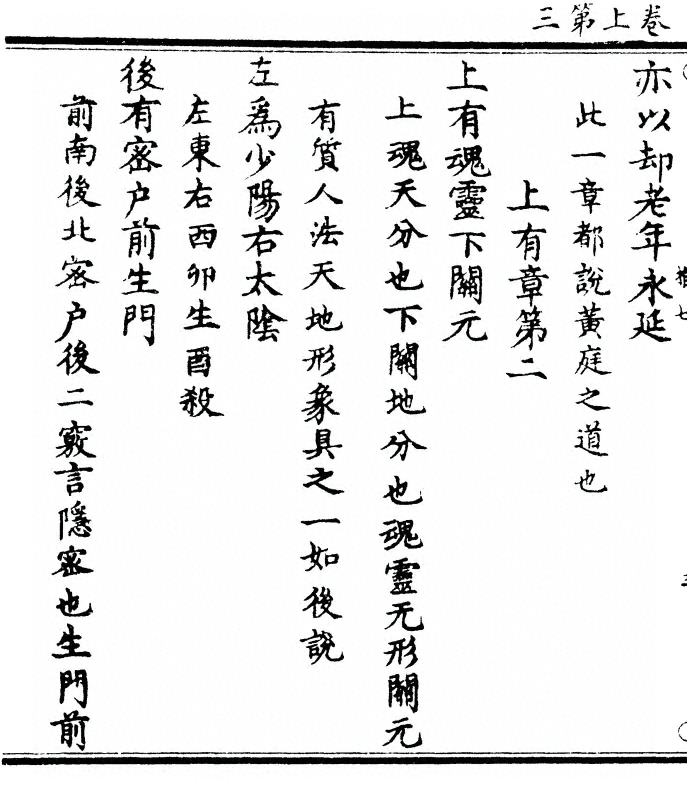 卷上第三
亦以却老年永延
此一章都說黃庭之道也
上有章第二
上有魂靈下關元
上魂天分也下關地分也魂靈无形關元
有質人法天地形象具之一如後說
左爲少陽右太陰
左東右西卯生酉殺
後有密户前生門
前南後北密户後二竅言隱密也生門前